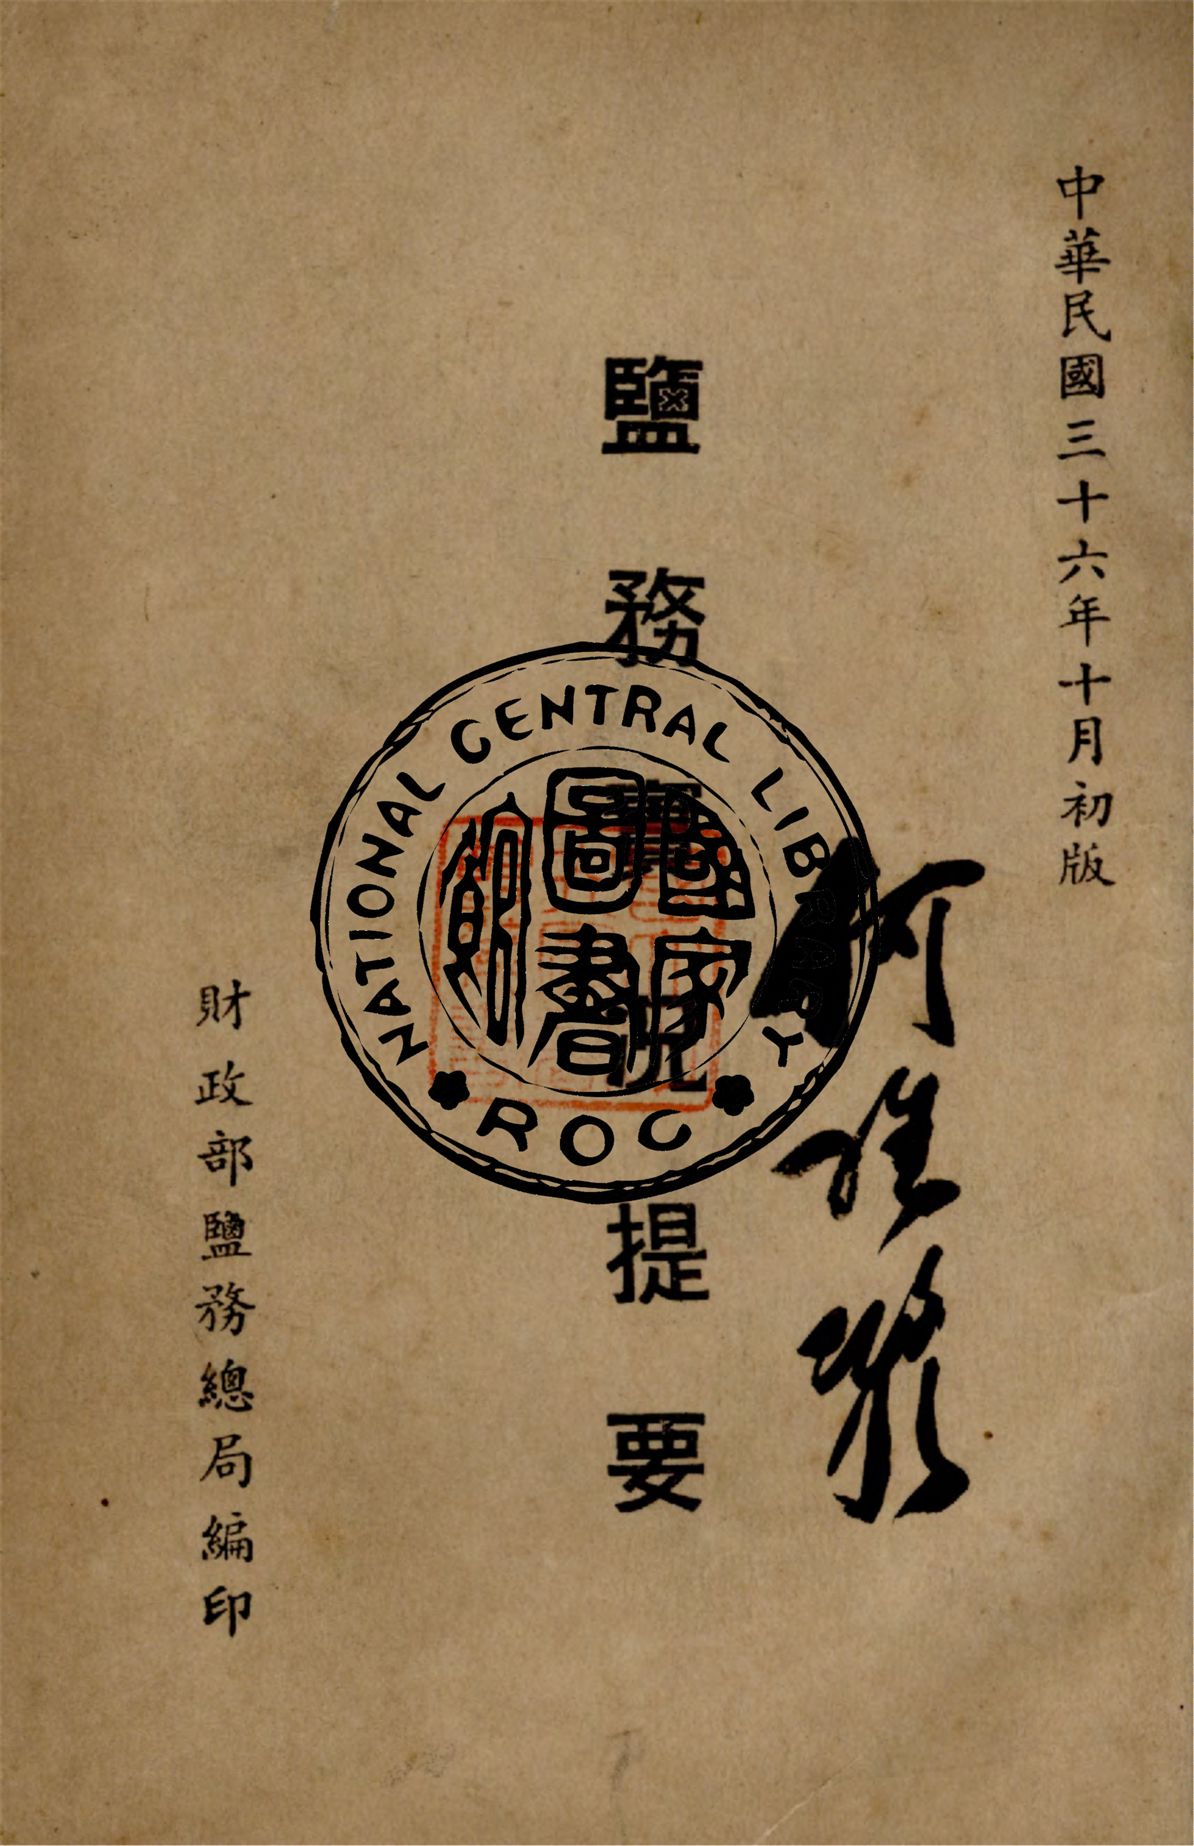 中華民國三十六年十月初版
何維凝
鹽務實況提要
財政部鹽務總局編印
NATIONAL CENTRAL LIBRARY
國家
圖書
館
ROC